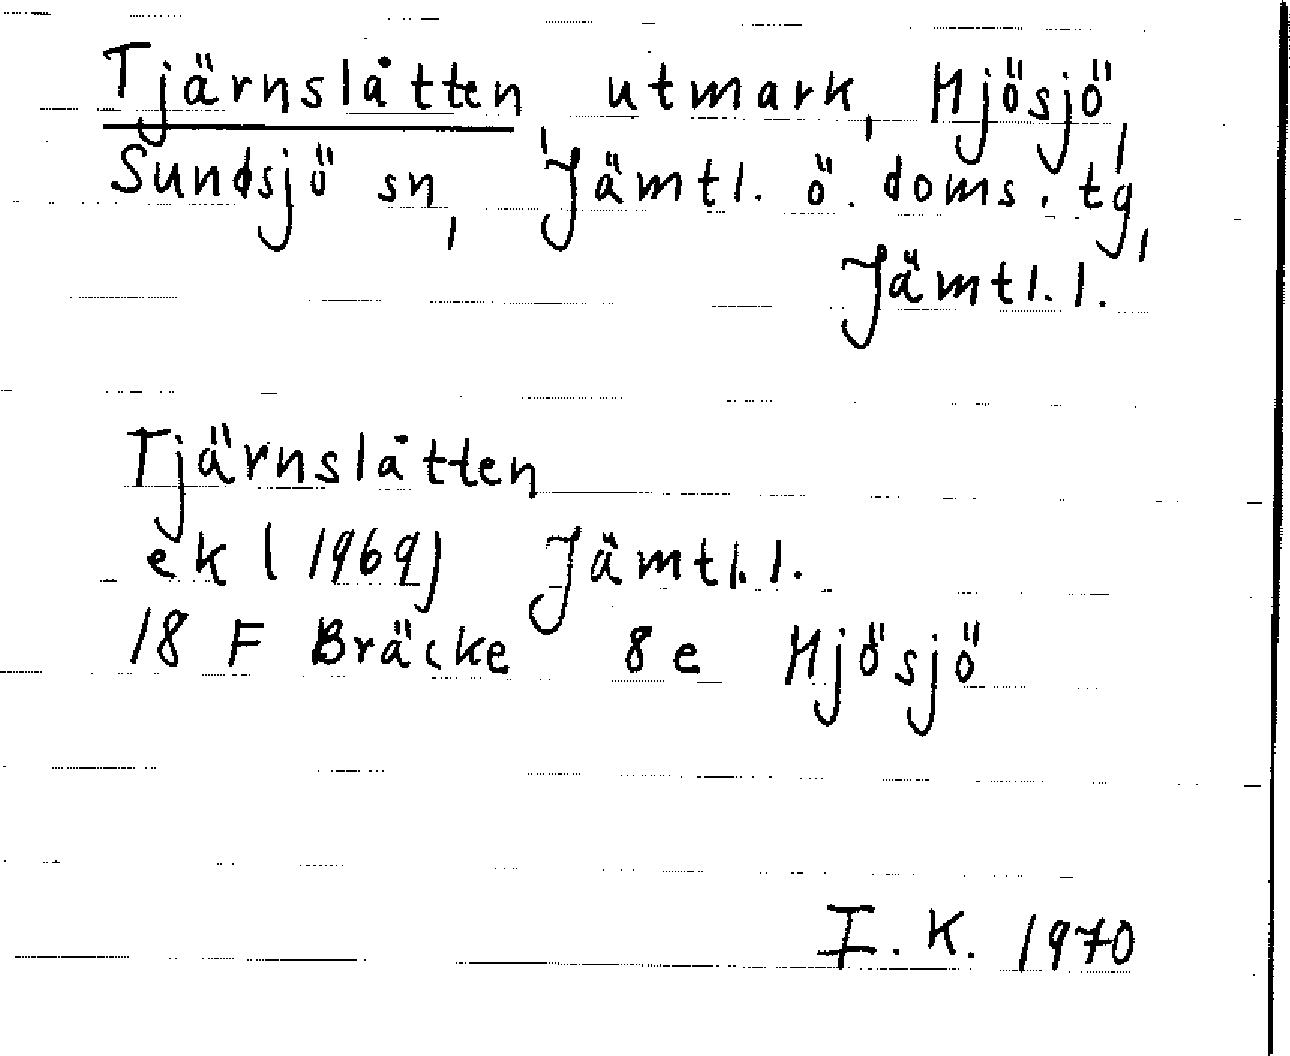 Tjärnslåtten, utmark, Hjösjö,
Sundsjö sn, Jämtl. ö. doms. tg,
Jämtl. l.
Tjärnslåtten
ek (1969) Jämtl. l.
18 F Bräcke 8e Hjösjö
I. K. 1970